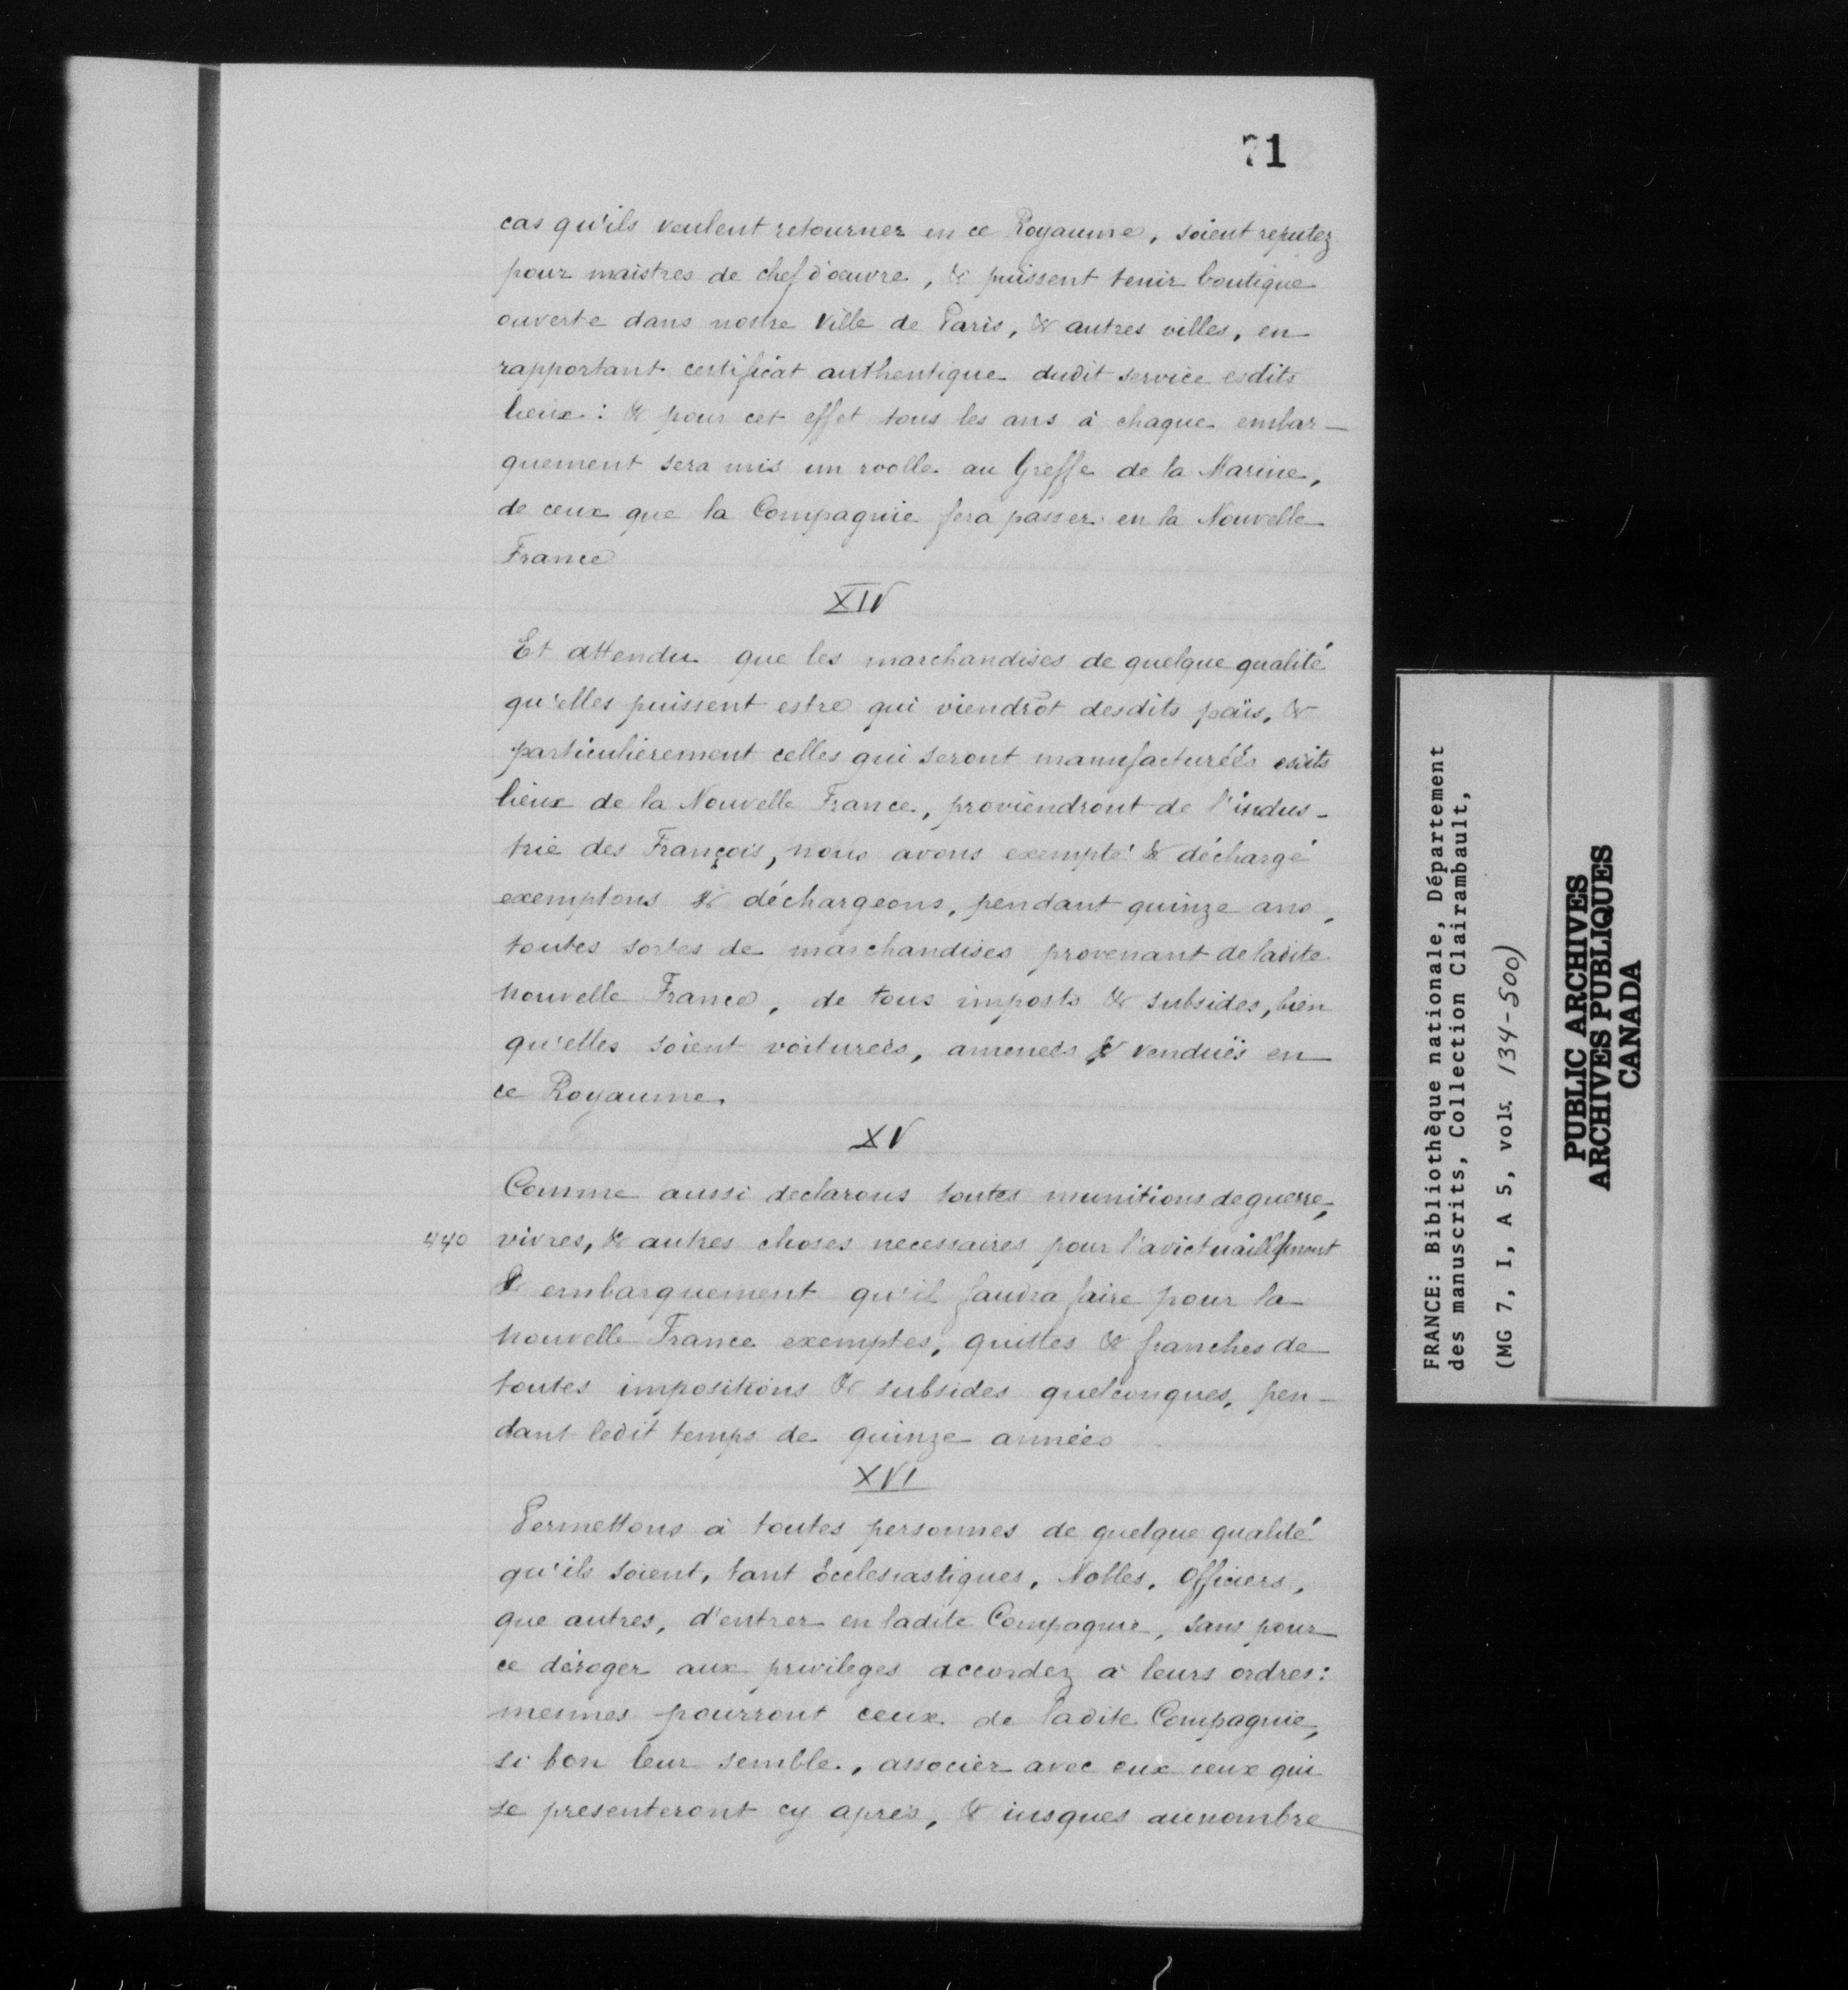 71
cas qu'ils veulent retourner en ce Royaume, soient reputez
pour maistres de chef d'œuvre, & puissent tenir boutique
ouverte dans nostre Ville de Paris, & autres villes, en
rapportant certificat authentique dudit service esdits
lieux : & pour cet effet tous les ans à chaque embar-
quement sera mis un roolle au Greffe de la Marine,
de ceux que la Compagnie fera passer en la Nouvelle
France
XIV
Et attendu que les marchandises de quelque qualité
qu'elles puissent estre qui viendrõt desdits païs, &
particulierement celles qui seront manufacturées esdits
lieux de la Nouvelle France, proviendront de l'indus-
trie des François, nous avons exempté & déchargé
exemptons & déchargeons, pendant quinze ans,
toutes sortes de marchandises provenant de ladite
nouvelle France, de tous imposts & subsides, bien
qu'elles soient voiturées, amenées & venduës en
ce Royaume.
XV
Comme aussi declarons toutes munitions de guerre,
440 vivres, & autres choses necessaires pour l'avictuaillement
& embarquement qu'il faudra faire pour la
nouvelle France exemptes, quittes & franches de
toutes impositions & subsides quelconques, pen-
dant ledit temps de quinze années
XVI
Permettons à toutes personnes de quelque qualité
qu'ils soient, tant Ecclesiastiques, Nobles, Officiers,
que autres, d'entrer en ladite Compagnie, sans pour
ce déroger aux privileges accordez à leurs ordres :
mesmes pourront ceux de ladite Compagnie,
si bon leur semble, associer avec eux ceux qui
se presenteront cy après, & iusques au nombre
FRANCE: Bibliothèque nationale, Département
des manuscrits, Collection Clairambault,
(MG 7, I, A 5, vols. 134-500)
PUBLIC ARCHIVES
ARCHIVES PUBLIQUES
CANADA